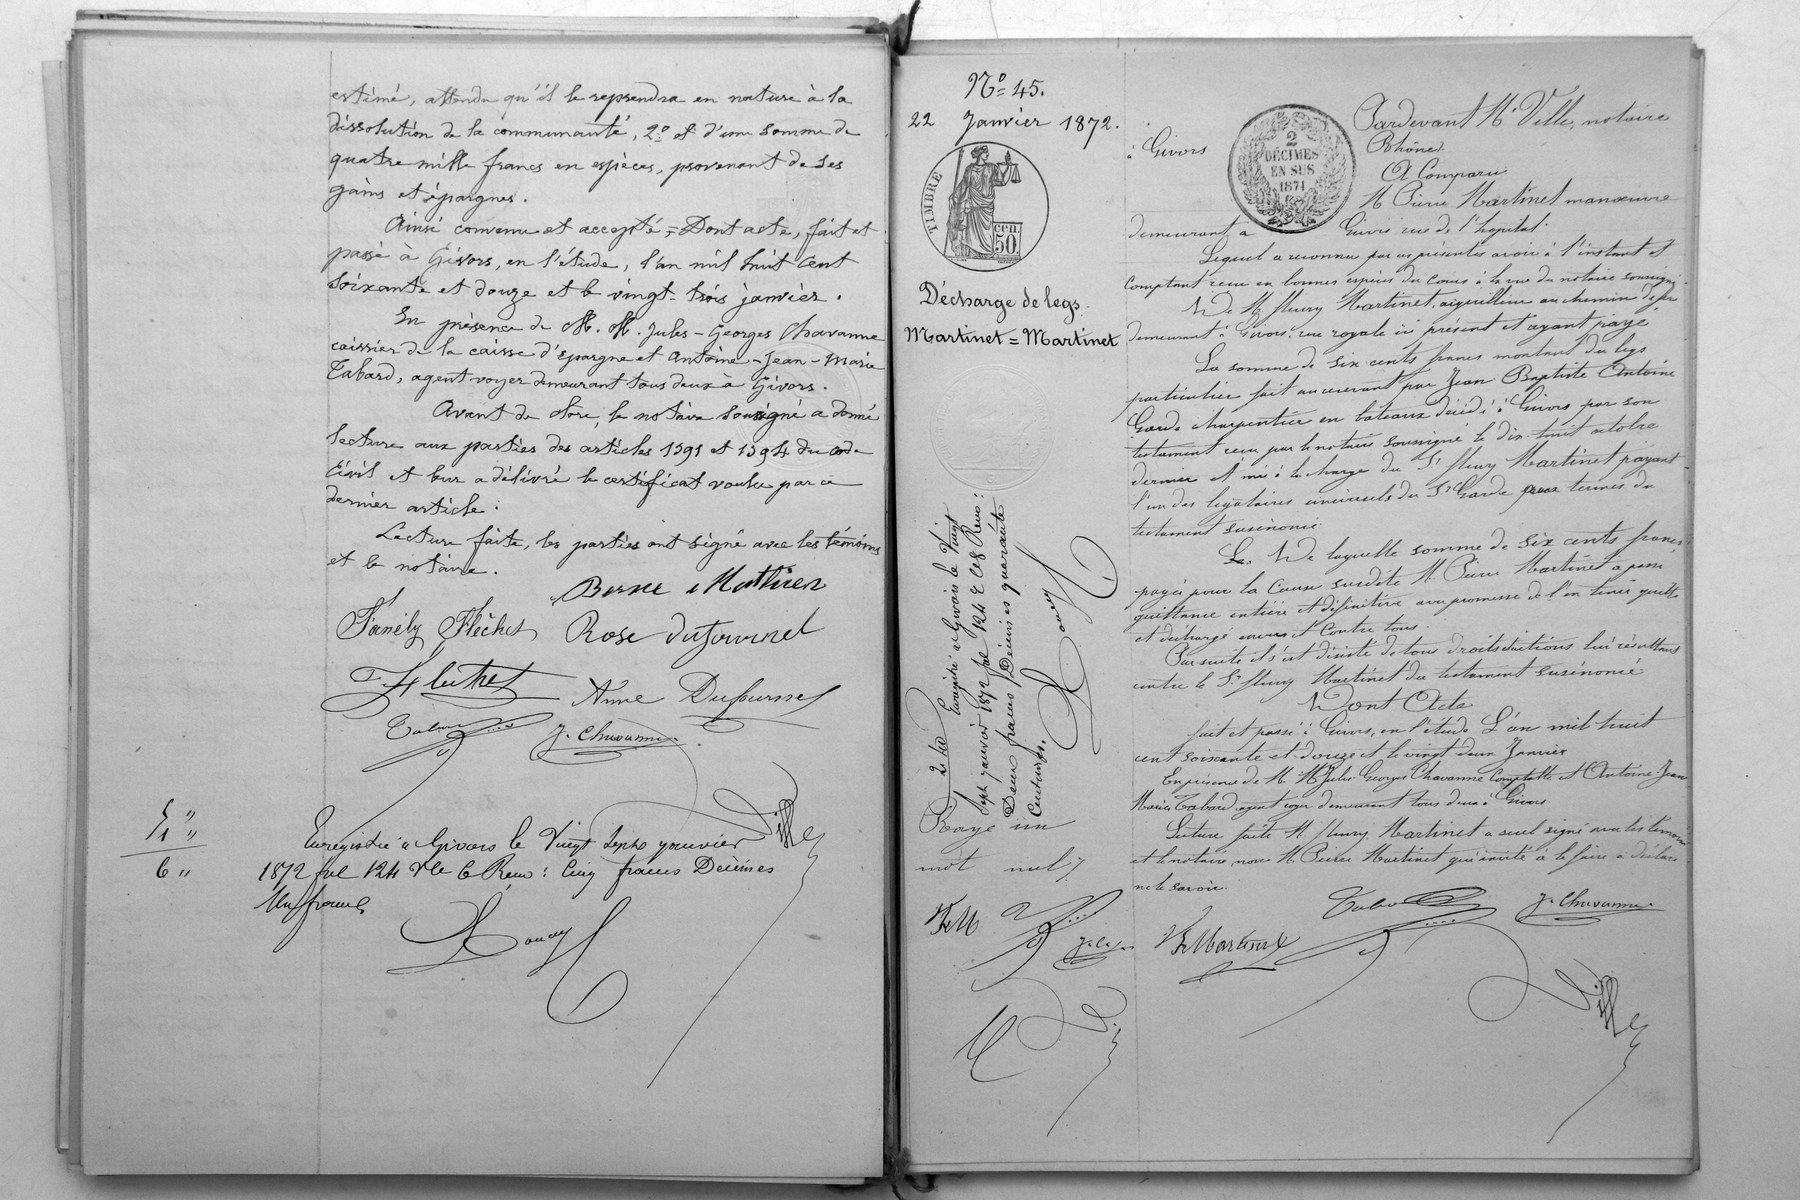 estimé, attendu qu'il le reprendra en nature à la
dissolution de la communauté, 2º et d'une somme de
quatre mille francs en espèces, provenant de ses
gains et épargnes.
Ainsi convenu et accepté, = Dont acte, fait et
passé à Givors, en l'étude, l'an mil huit cent
soixante et douze et le vingt-trois janvier.
En présence de M. M. Jules-Georges Chavanne
caissier de la caisse d'épargne et Antoine-Jean-Marie
Tabard, agent voyer demeurant tous deux à Givors.
Avant de clore, le notaire soussigné a donné
lecture aux parties des articles 1391 et 1394 du code
civil et leur a délivré le certificat voulu par ce
dernier article.
Lecture faite, les parties ont signé avec les témoins
et le notaire.
Berne Mathieu
Fanély Fléchet Rose dufournel
Fléchet Anne Dufournel
Tabard J. Chavanne
Ville
5 "
1 "
6 "
Enregistré à Givors le Vingt Sept janvier
1872 fol 124 Vº C 6 Reçu: Cinq francs Décimes
Un franc
Nº 45.
22 Janvier 1872.
TIMBRE
50 cen
Décharge de legs.
Martinet = Martinet
2 40
Enregistré à Givors le Vingt
Sept janvier 1872 fol 124 C 8 Reçu:
Deux francs Décimes quarante
Centimes.
Rayé un
mot nul
Pardevant Me Ville, notaire
à Givors Rhône.
2
DÉCIMES
EN SUS
1871
A Comparu
M Pierre Martinet manœuvre
demeurant à Givors rue de l'hopital.
Lequel a reconnu par ces présentes avoir à l'instant et
comptant reçu en bonnes espèces du cours à la vue du notaire soussigné
De M. fleury Martinet, aiguilleur au chemin de fer
demeurant à Givors, rue royale ici présent et ayant payé
La somme de six cents francs montant du legs
particulier fait au comparant par Jean Baptiste Antoine
Garde charpentier en bateaux décédé à Givors par son
testament reçu par le notaire soussigné le dix-huit octobre
dernier et mis à la charge du Sr fleury Martinet payant
l'un des légataires universels du Sr Garde aux termes du
testament susénoncé.
De laquelle somme de six cents francs
payée pour la cause susdite M. Pierre Martinet a passé
quittance entière et définitive avec promesse de l'en tenir quitte
et déchargé envers et contre tous.
Par suite il s'est désisté de tous droits et actions lui résultant
contre le Sr fleury Martinet du testament susénoncé
Dont Acte
fait et passé à Givors, en l'étude L'an mil huit
cent soixante et douze et le vingt deux Janvier
En présence de M. M Jules Georges Chavanne Comptable et Antoine Jean
Marie Tabard agent voyer demeurant tous deux à Givors.
Lecture faite M. fleury Martinet a seul signé avec les témoins
et le notaire, non M. Pierre Martinet qui invité à le faire a déclaré
ne le savoir.
Tabard J. Chavanne
Martinet
Ville